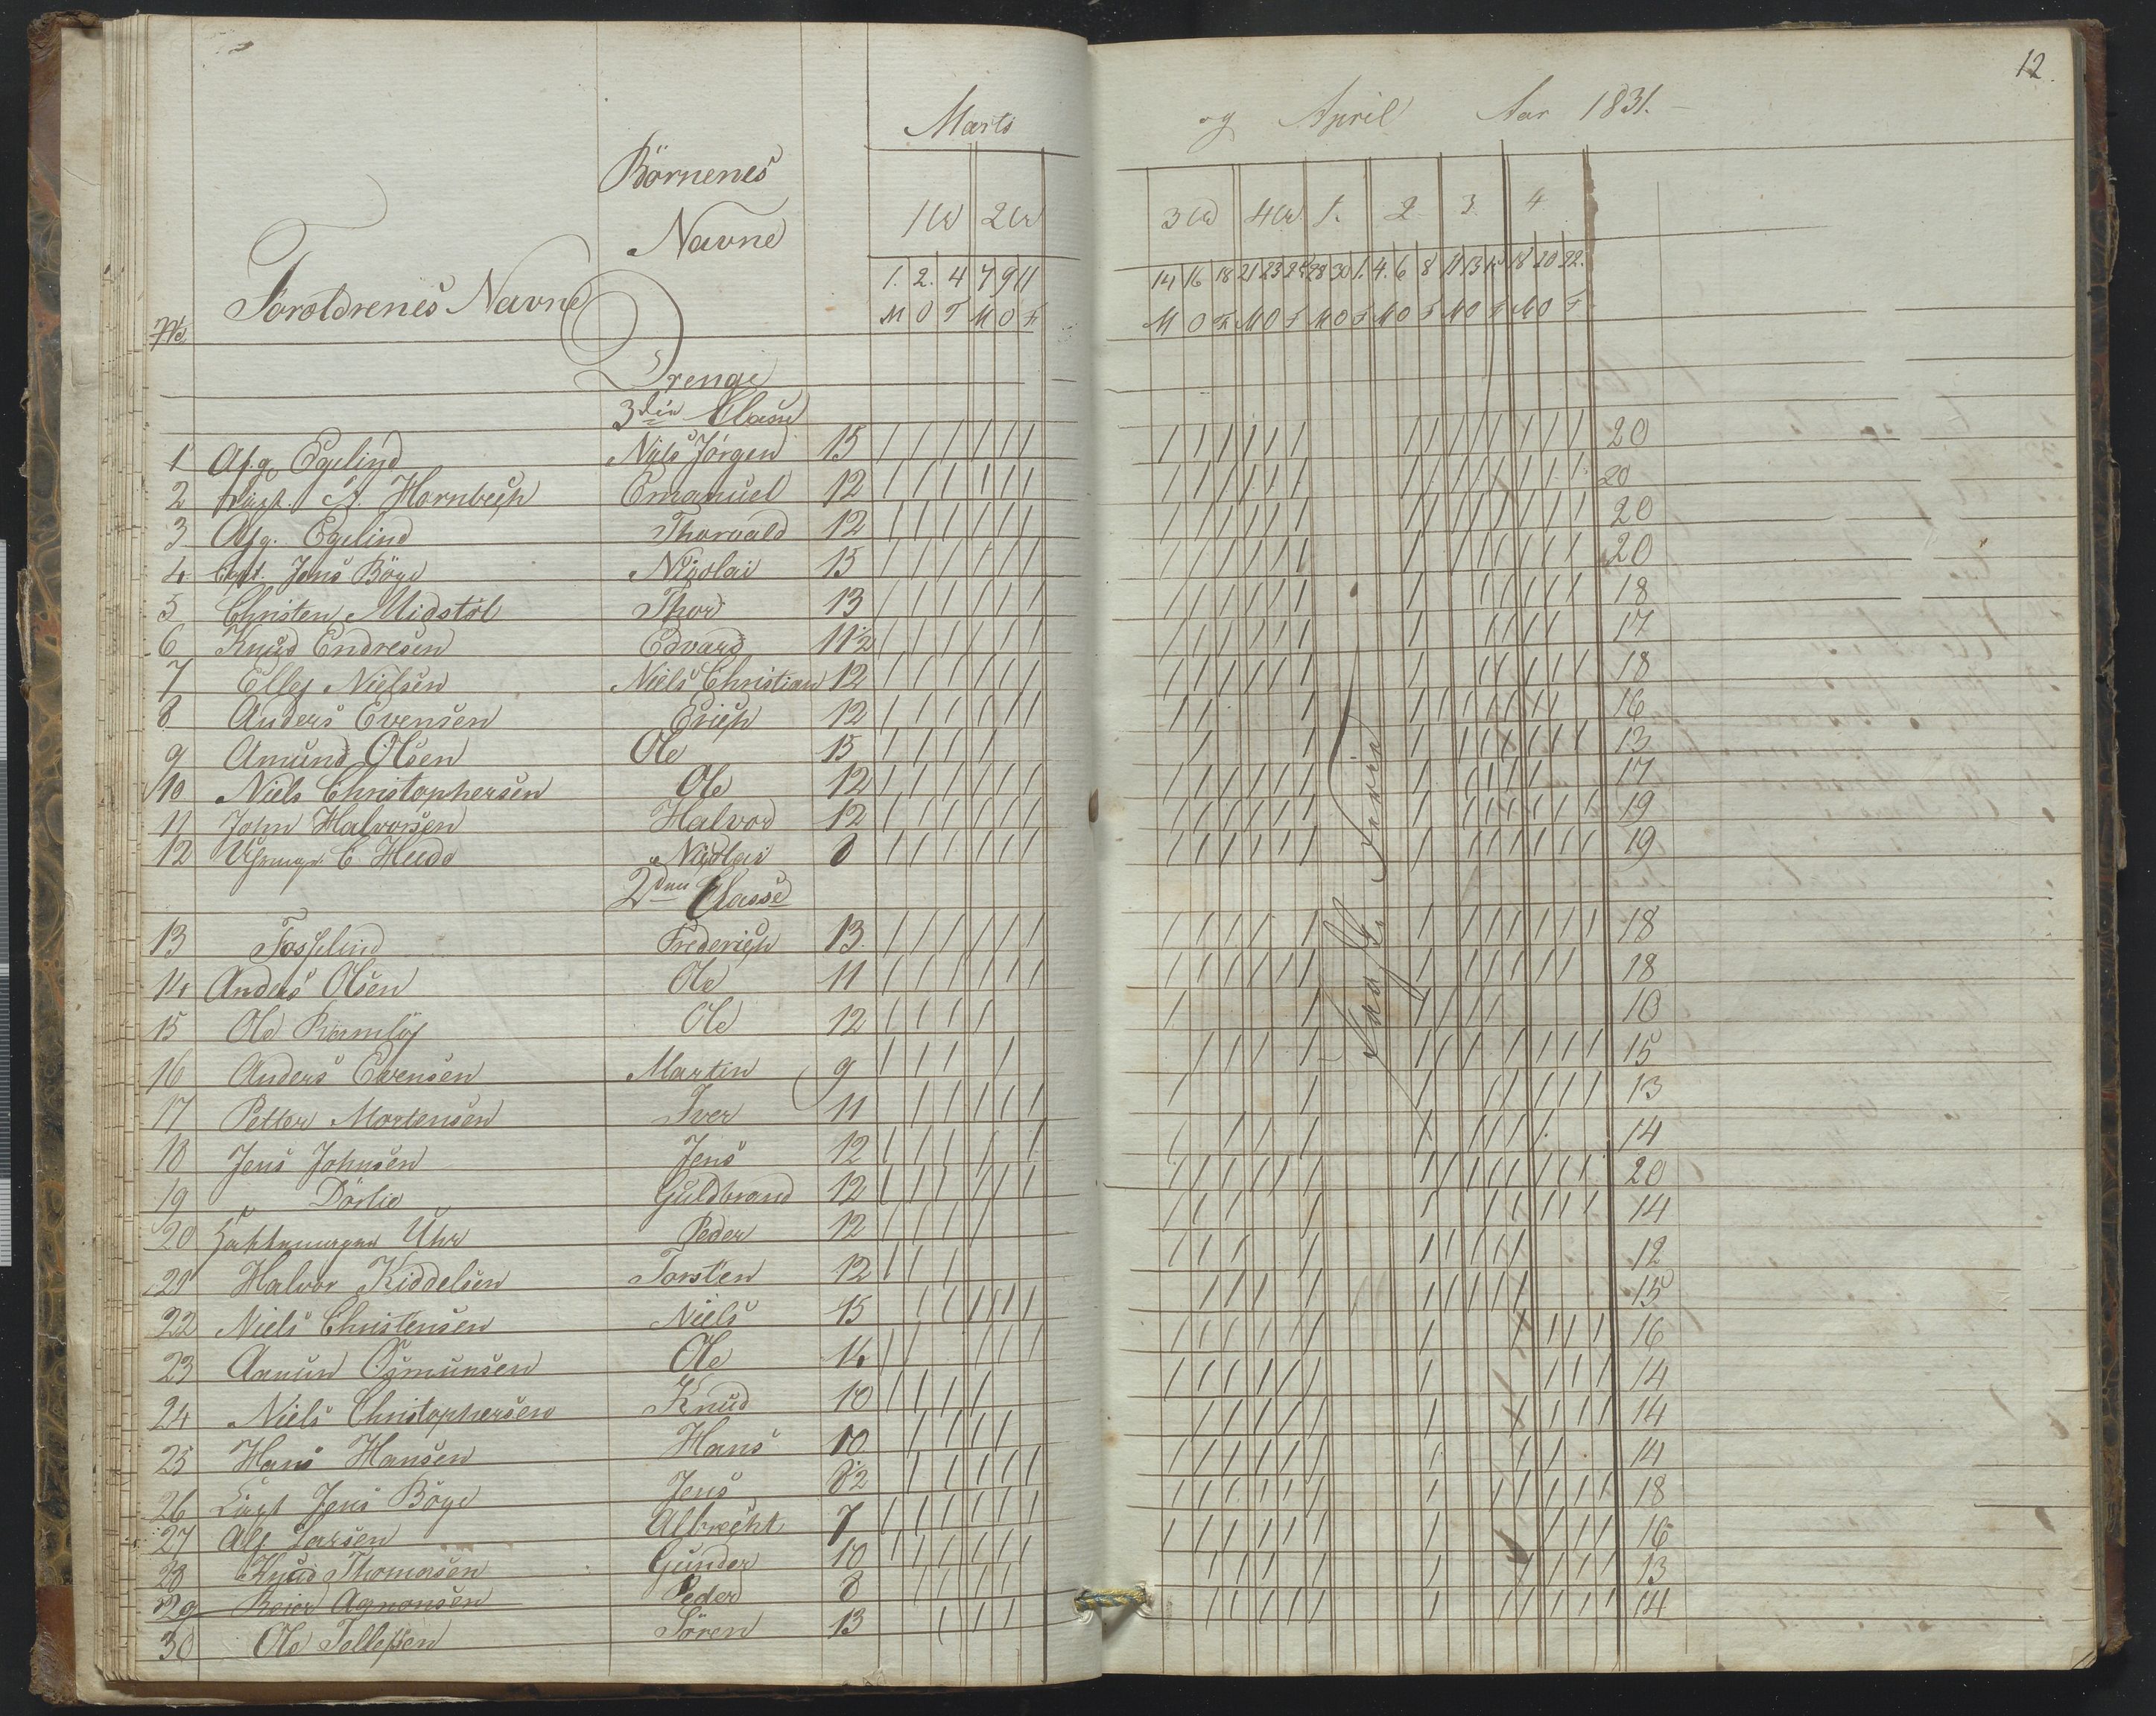 12.
Marts og April Aar 1831.
No Foroldrenes Navne Börnenes Navne
1 U 2 U 3 U 4 U 1. 2 3 4
1. 2. 4 7 9 11 14 16 18 21 23 25 28 30 1. 4. 6 8 11 13 15 18 20 22.
M O F M O F M O F M O F M O F M O F M O F M O F
Drenge
3die Classe
1 Afg. Egelind Niels Jörgen 15 / / / / / / / / / / / / / / / / / / / / 20
2 A. Hornbech Emanuel 12 20
3 Afg. Egelind Thorvald 12 20
4 Capt. Jens Böye Nicolai 15 20
5 Christen Midstöl Thor 13 18
6 Knud Endresen Edvard 11 1/2 17
7 Ellef Nielsen Niels Christian 12 18
8 Anders Evensen Erich 12 16
9 Amund Olsen Ole 15 13
10 Niels Christophersen Ole 12 17
11 John Halvorsen Halvor 12 19
12 C. Nicolai 8 19
2den Classe
13 Fosselind Frederich 13 18
14 Anders Olsen Ole 11 18
15 Ole Ole 12 10
16 Anders Evensen Martin 9 15
17 Petter Mortensen Iver 11 13
18 Jens Johnsen Jens 12 14
19 Dörlie Guldbrand 12 20
20 Uhr Peder 12 14
21 Halvor Kiddelsen Torsten 12 12
22 Niels Christensen Niels 15 15
23 Osmunsen Ole 14 16
24 Niels Christophersen Knud 10 14
25 Hans Hansen Hans 10 14
26 Capt Jens Böye Jens 8 1/2 14
27 Alf Larsen Albrecht 7 18
28 Knud Thomasen Gunder 10 16
29 Reier Agnonsen Peder 8 13
30 Ole Tellefsen Sören 13 14
Paaske